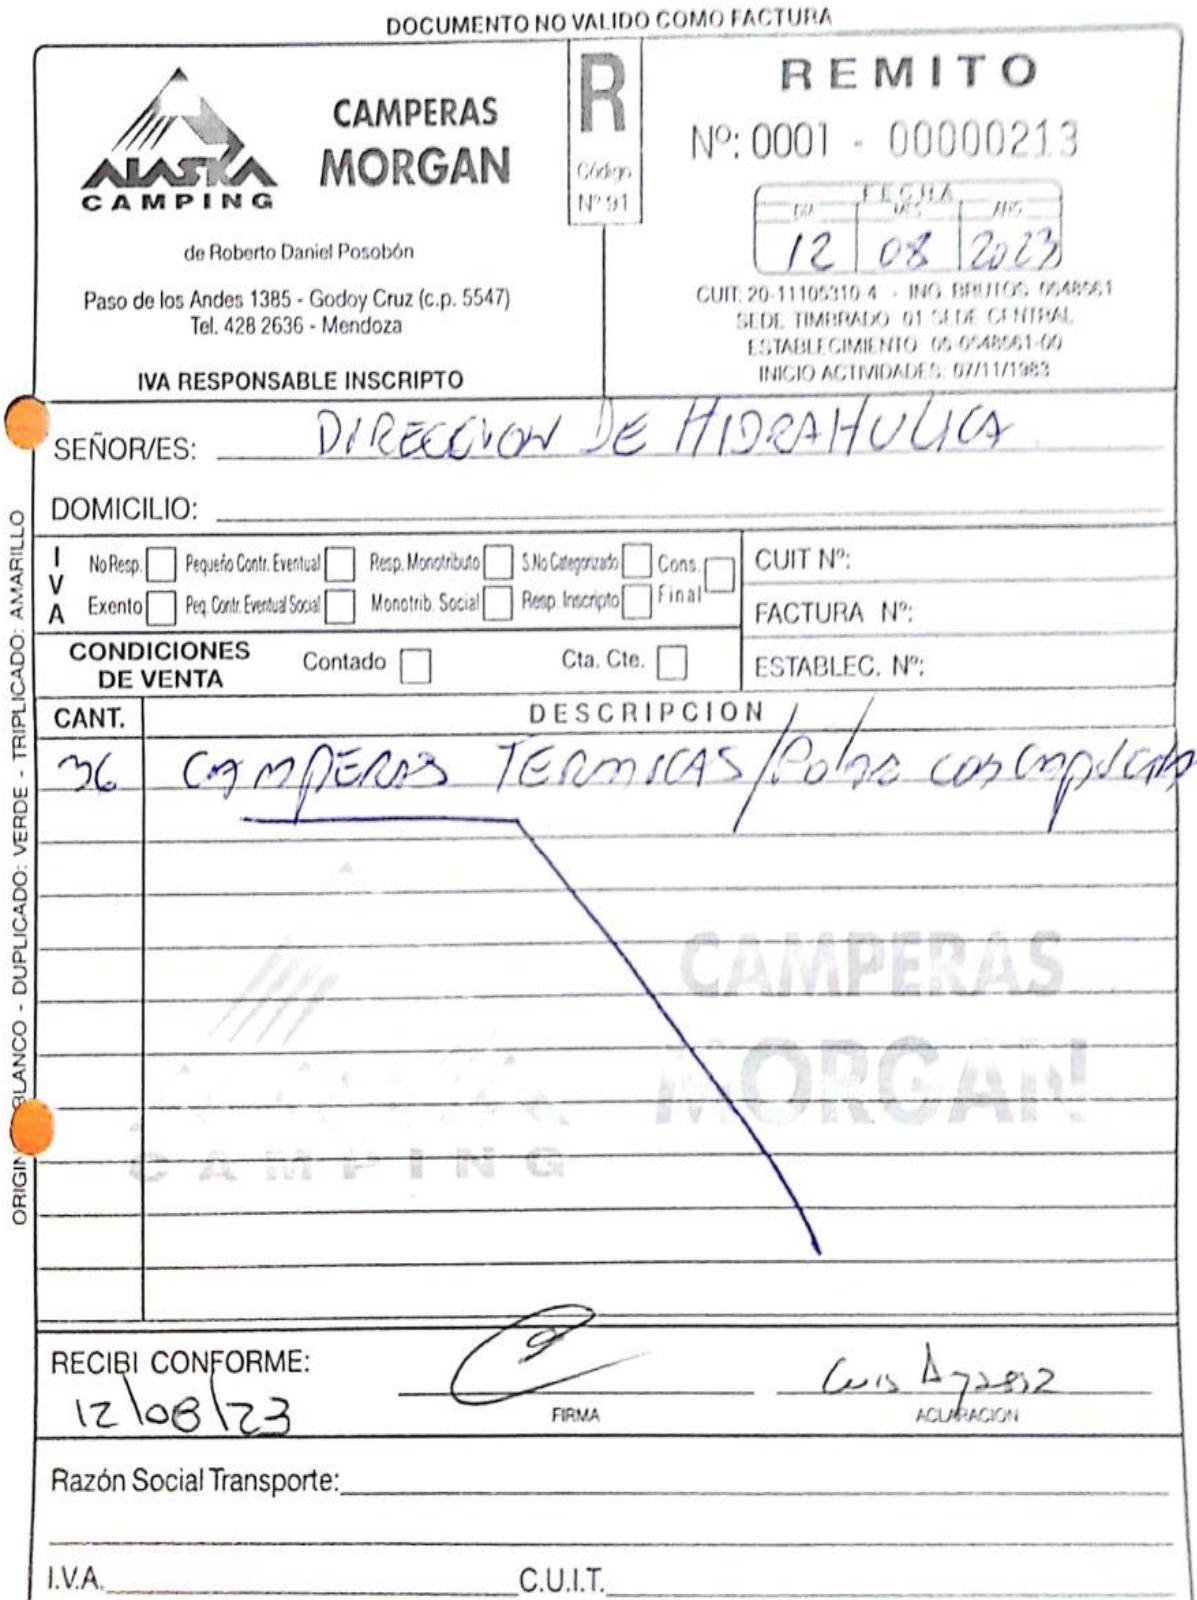 DOCUMENTO NO VALIDO COMO FACTURA
ALASKA
CAMPING
CAMPERAS
MORGAN
de Roberto Daniel Posobón
Paso de los Andes 1385 - Godoy Cruz (c.p. 5547)
Tel. 428 2636 - Mendoza
IVA RESPONSABLE INSCRIPTO
R
Código
Nº 91
REMITO
Nº: 0001 - 00000213
FECHA
DIA MES AÑO
12 08 2023
CUIT: 20-11105310-4 - ING. BRUTOS 0548561
SEDE TIMBRADO 01 SEDE CENTRAL
ESTABLECIMIENTO 05-0548561-00
INICIO ACTIVIDADES: 07/11/1983
SEÑOR/ES: DIRECCION DE HIDRAHULICA
DOMICILIO:
IVA
No Resp. Pequeño Contr. Eventual Resp. Monotributo S.No Categorizado Cons. Final
Exento Peq. Contr. Eventual Social Monotrib. Social Resp. Inscripto
CUIT Nº:
FACTURA Nº:
ESTABLEC. Nº:
CONDICIONES
DE VENTA
Contado Cta. Cte.
CANT. DESCRIPCION
36 CAMPERAS TERMICAS / Polar con capucha
CAMPERAS
MORGAN
CAMPING
RECIBI CONFORME:
12/08/23
FIRMA
Luis
ACLARACION
Razón Social Transporte:
I.V.A. C.U.I.T.
ORIGIN BLANCO - DUPLICADO: VERDE - TRIPLICADO: AMARILLO